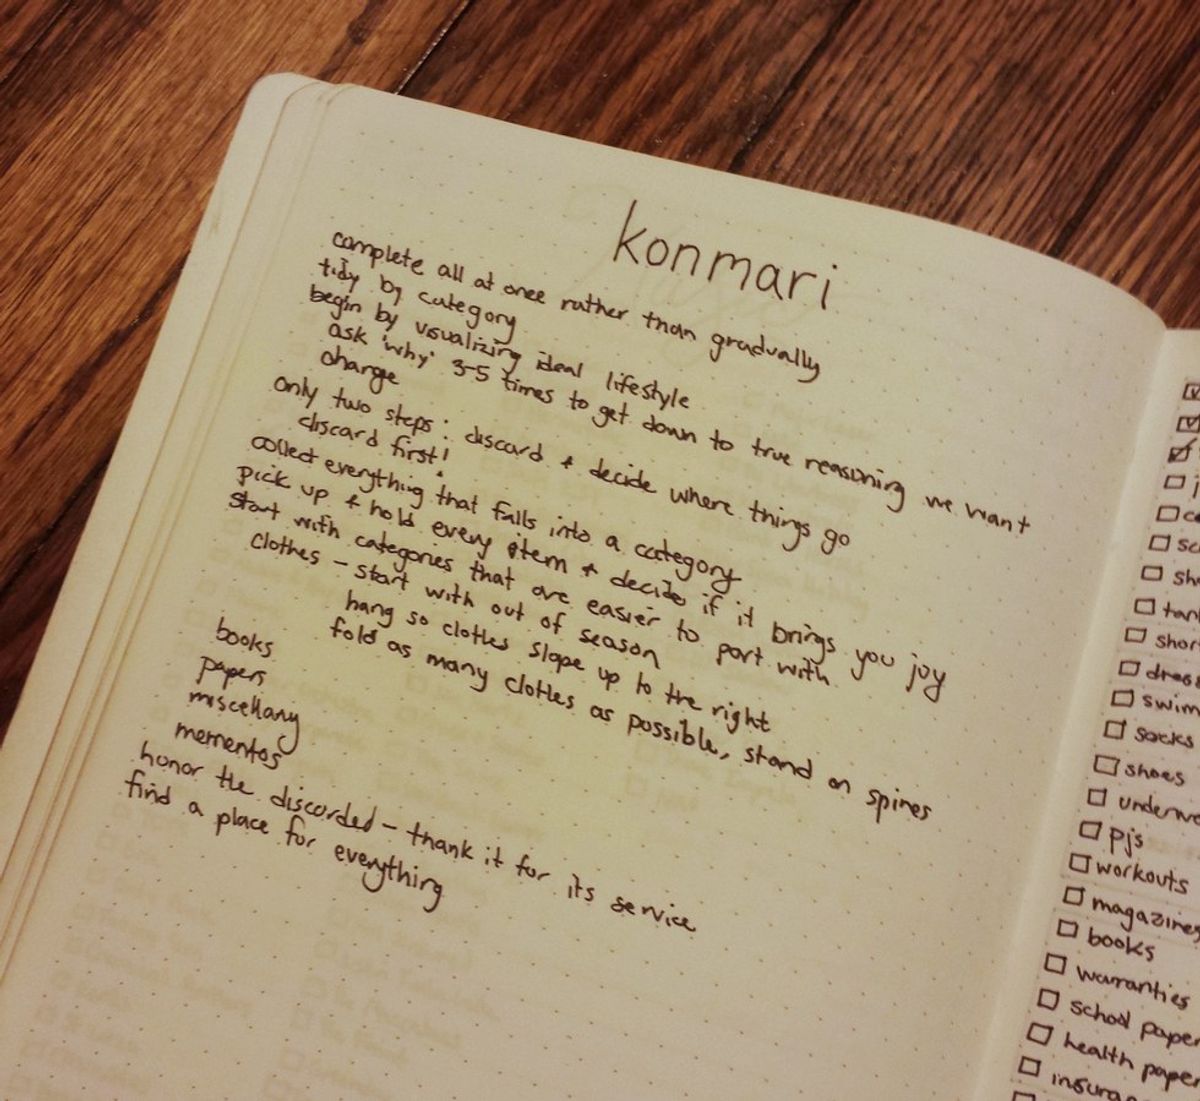 konmari
complete all at once rather than gradually
tidy by category
begin by visualizing ideal lifestyle
ask 'why' 3-5 times to get down to true reasoning we want
change
only two steps: discard + decide where things go
discard first!
collect everything that falls into a category
pick up + hold every item + decide if it brings you joy
start with categories that are easier to part with
clothes - start with out of season
hang so clothes slope up to the right
fold as many clothes as possible, stand on spines
books
papers
miscellany
mementos
honor the discarded - thank it for its service
find a place for everything
sho
tan
shor
dress
swim
socks
shoes
underwe
pjs
workouts
magazines
books
warranties
school paper
health paper
insuran